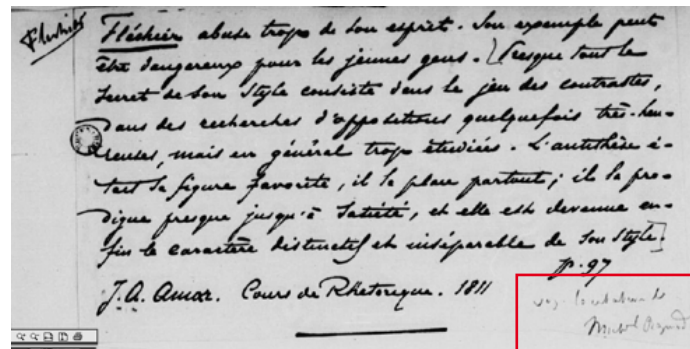 Fléchier
Fléchier abuse trop de son esprit. Son exemple peut
être dangereux pour les jeunes gens. [Presque tout le
secret de son style consiste dans le jeu des contrastes,
dans des recherches d'oppositions quelquefois très-heu-
reuses, mais en général trop étudiées. L'antithèse é-
tait sa figure favorite, il la place partout; il la pro-
digue presque jusqu'à satiété, et elle est devenue en-
fin le caractère distinctif et inséparable de son style.]
p. 97
J. A. Amar. Cours de Rhétorique. 1811
voy.
Michel